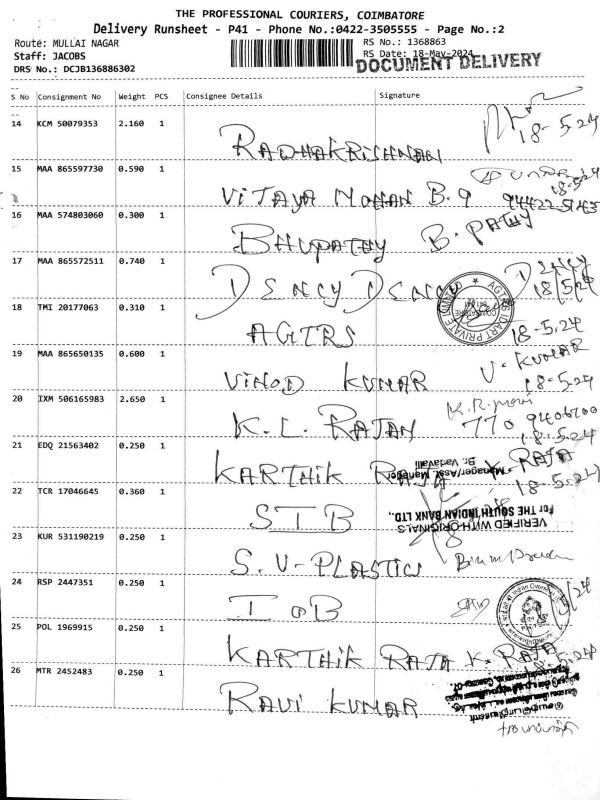 THE PROFESSIONAL COURIERS, COIMBATORE
Delivery Runsheet - P41 - Phone No.:0422-3505555 - Page No.:2
Route: MULLAI NAGAR
RS No.: 1368863
Staff: JACOBS
RS Date: 18-May-2024
DRS No.: DCJB136886302
DOCUMENT DELIVERY
S No Consignment No Weight PCS Consignee Details Signature
14 KCM 50079353 2.160 1
18-5.24
RADHAKRISHNAN
15 MAA 865597730 0.590 1
18-5/24
VIJAYA MOHAN B.9
16 MAA 574803060 0.300 1
BHUPATHY B. PATHY
17 MAA 865572511 0.740 1
DENCY DENCY DENCY
18/5/24
18 TMI 20177063 0.310 1
AGTRS 18-5.24
19 MAA 865650135 0.600 1
VINOD KUMAR V. KUMAR
18-5.24
20 IXM 506165983 2.650 1
K.L. RAJAN 770 9406700
18-5.24
21 EDQ 21563402 0.250 1
KARTHIK RAJA K. RAJA
18-5.24
Manager/Asst. Manager
Br. Vadavalli
22 TCR 17046645 0.360 1
SIB
For THE SOUTH INDIAN BANK LTD.,
VERIFIED WITH ORIGINALS
23 KUR 531190219 0.250 1
S.V-PLASTIC
24 RSP 2447351 0.250 1
IOB
25 POL 1969915 0.250 1
KARTHIK RAJA K. RAJA
18-5.24
26 MTR 2452483 0.250 1
RAVI KUMAR